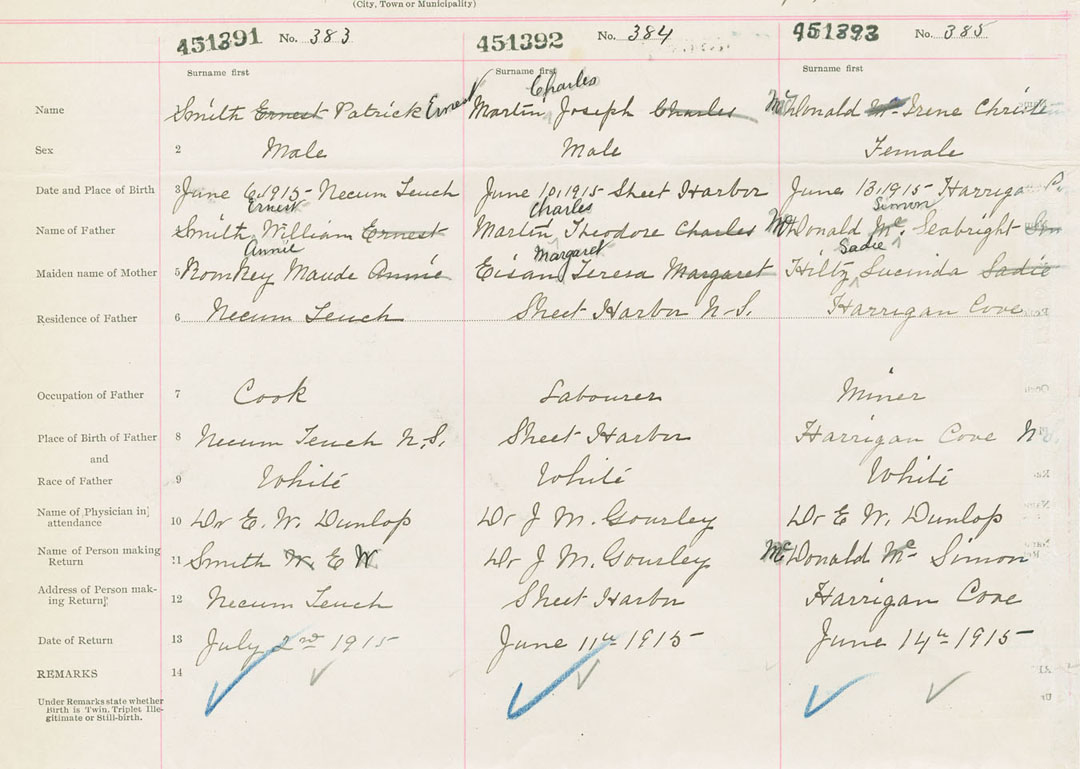 (City, Town or Municipality)
451391 No. 383 451392 No. 384 451393 No. 385
Surname first Surname first Surname first
Charles
Name Smith Ernest Patrick Ernest Martin Joseph Charles McDonald Mc Irene
Sex 2 Male Male Female
Date and Place of Birth 3 June 6, 1915 - Necum Teuch June 10, 1915 - Sheet Harbor June 13, 1915 - Harrigan
Ernest Charles Simon
Name of Father Smith William Ernest Martin Theodore Charles McDonald Mc Seabright
Annie Margaret Sadie
Maiden name of Mother 5 Romkey Maude Annie Eisan Teresa Margaret Hiltz Lucinda Sadie
Residence of Father 6 Necum Teuch Sheet Harbor N-S. Harrigan Cove
Occupation of Father 7 Cook Labourer Miner
Place of Birth of Father 8 Necum Teuch N.S. Sheet Harbor Harrigan Cove N
and
Race of Father 9 White White White
Name of Physician in attendance 10 Dr E. W. Dunlop Dr J M. Gourley Dr E W. Dunlop
Name of Person making Return 11 Smith W E W Dr J M. Gourley McDonald Mc Simon
Address of Person making Return 12 Necum Teuch Sheet Harbor Harrigan Cove
Date of Return 13 July 2nd 1915 June 11th 1915 June 14th 1915
REMARKS 14
Under Remarks state whether
Birth is Twin, Triplet Ille-
gitimate or Still-birth.